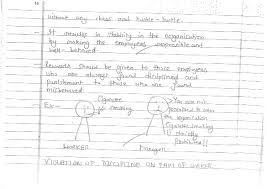 without any chaos and hustle-bustle.
It results in stability in the organisation
by making the employees responsible and
well-behaved.
Rewards should be given to those employees
who are always found disciplined and
punishment to those who are found
misbehaved
Ex:-
Cigarette
smoking
You are not
permitted to
the organisation
Cigarette smoking
is strictly
prohibited!!
WORKER
Manager
VIOLATION OF DISCIPLINE ON PART OF WORKER